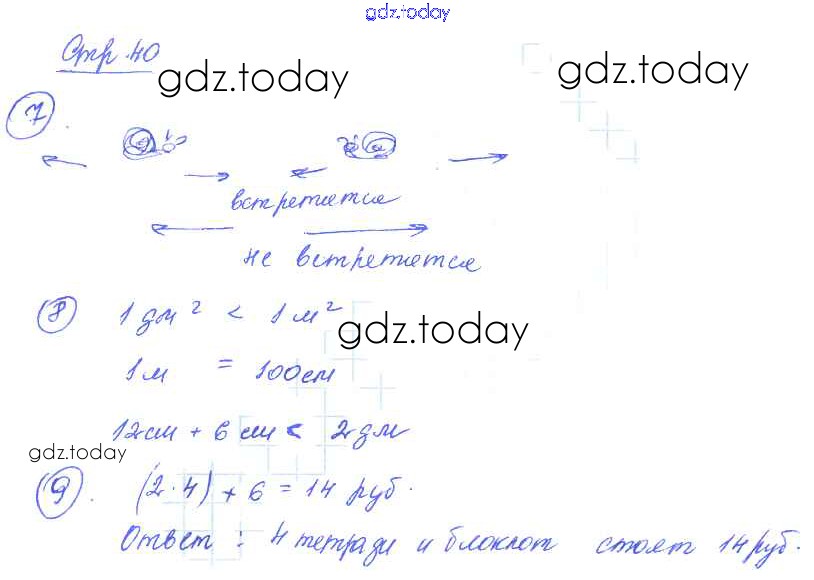 gdz.today
Стр. 40
gdz.today gdz.today
7.
встретятся
не встретятся
8 1 дм² < 1 м²
gdz.today
1м = 100см
12см + 6 см < 2дм
gdz.today
9. (2·4) + 6 = 14 руб.
Ответ: 4 тетради и блокнот стоят 14 руб.